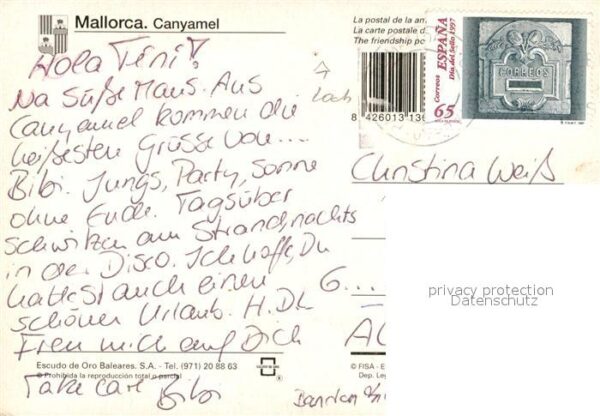 Mallorca. Canyamel
Hola Tini!
Na süße Maus. Aus
Canyamel kommen die
heißesten Grüsse von...
Bibi. Jungs, Party, Sonne
ohne Ende. Tagsüber
schwitzen am Strand, nachts
in der Disco. Ich hoffe, Du
hattest auch einen
schönen Urlaub. H.D.L
Freu mich auf Dich
Take care Bibi
Escudo de Oro Baleares. S.A. - Tel. (971) 20 88 63
© Prohibida la reproducción total o parcial
La postal de la
La carte postale d
The friendship po
8 426013 13
Correos ESPAÑA
Día del Sello 1997
65
CORREOS
Christina Weiß
G...
privacy protection
Datenschutz
© FISA - E
Dep. Leg